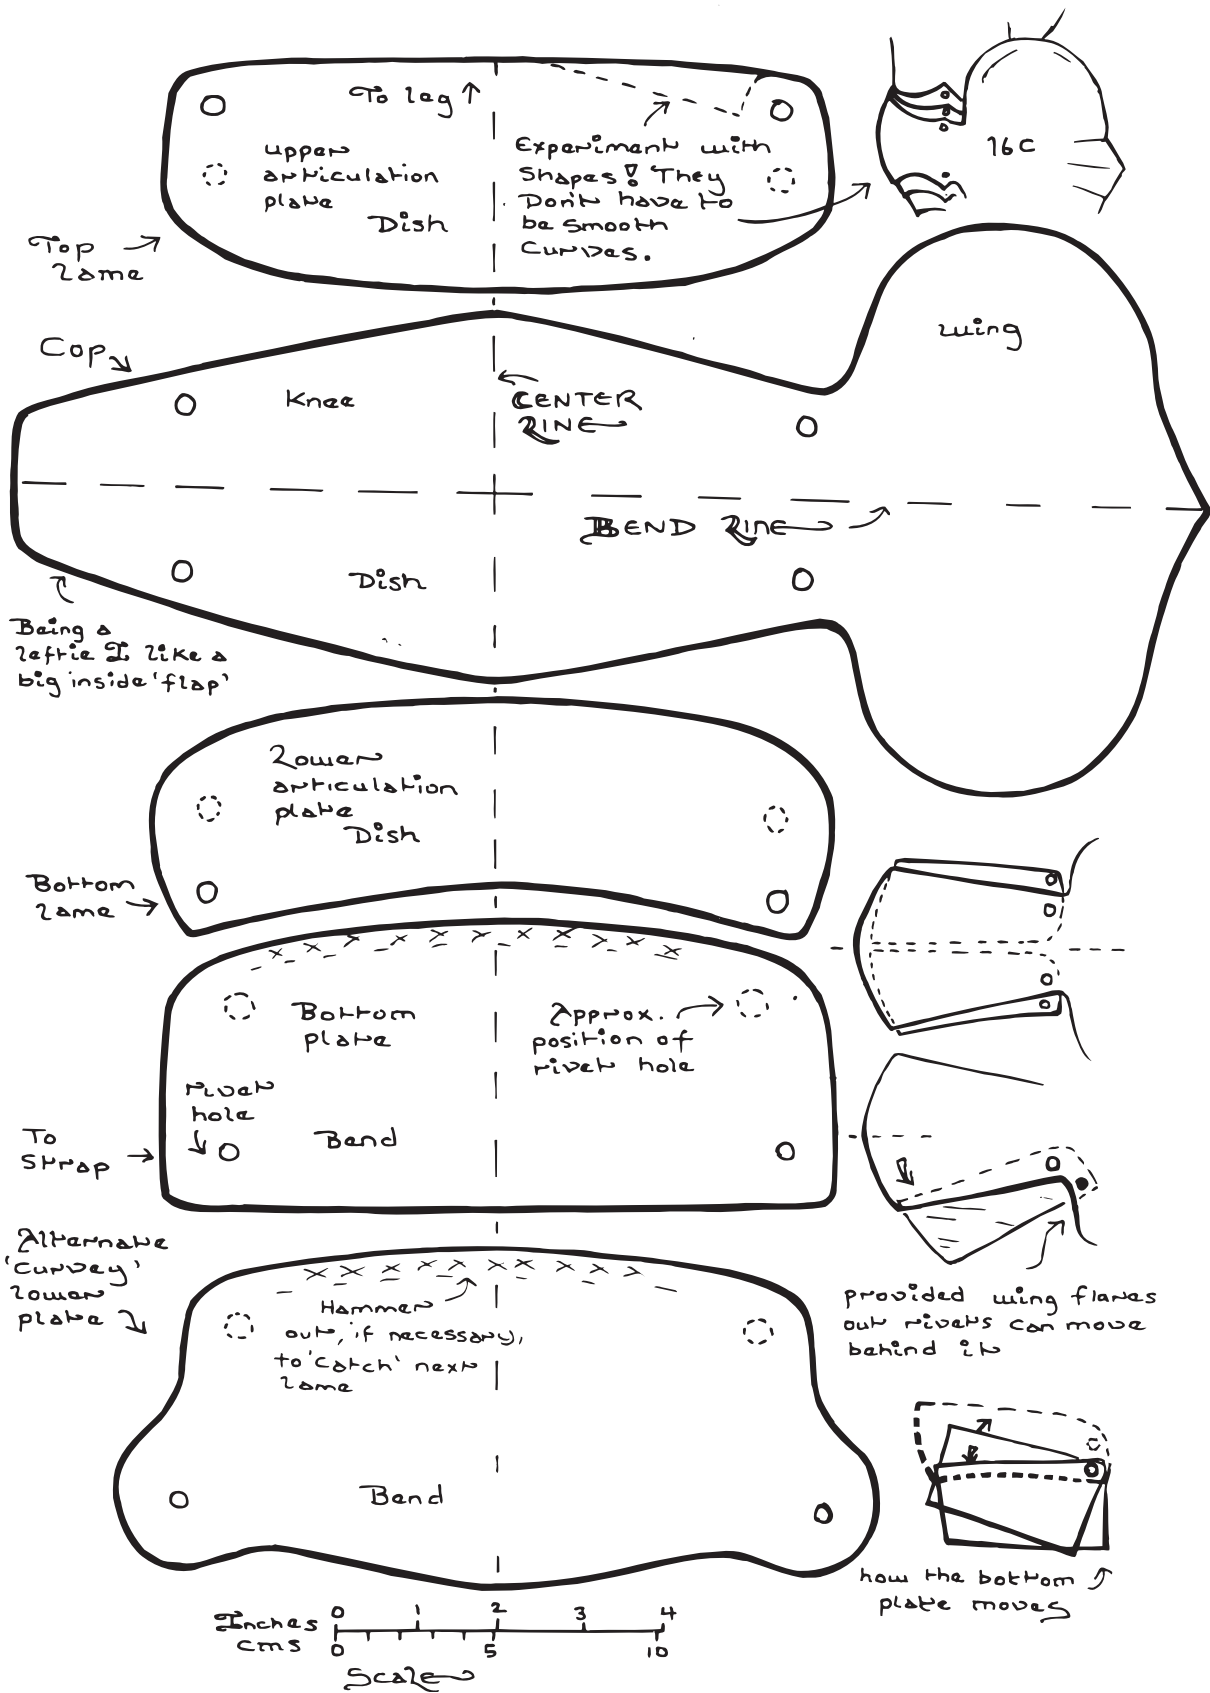 To leg ↑
upper
articulation
plate
Dish
Experiment with
shapes! They
Don't have to
be smooth
curves.
16C
Top
Lame
Cop
Knee
CENTER
LINE
wing
BEND LINE
Dish
Being a
leftie I like a
big inside 'flap'
Lower
articulation
plate
Dish
Bottom
Lame
Bottom
plate
Approx.
position of
rivet hole
rivet
hole
Bend
To
Strap
Alternate
'Curvey'
lower
plate
Hammer
out, if necessary,
to 'catch' next
lame
Bend
provided wing flares
out rivets can move
behind it
how the bottom
plate moves
Inches 0 1 2 3 4
cms 0 5 10
Scale